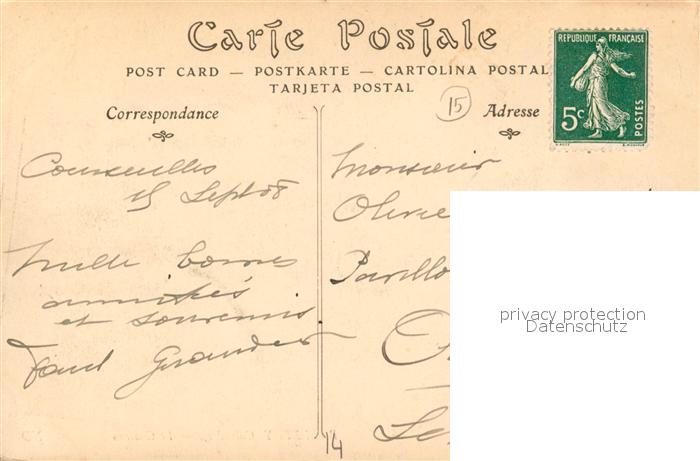 Carte Postale
POST CARD — POSTKARTE — CARTOLINA POSTAL
TARJETA POSTAL
Correspondance
Courseulles
15 Sept 08
Mille bonnes
amitiés
et souvenirs
Paul
15
Adresse
REPUBLIQUE FRANÇAISE
5c
POSTES
Monsieur
Olivie
Pavillo
privacy protection
Datenschutz
14